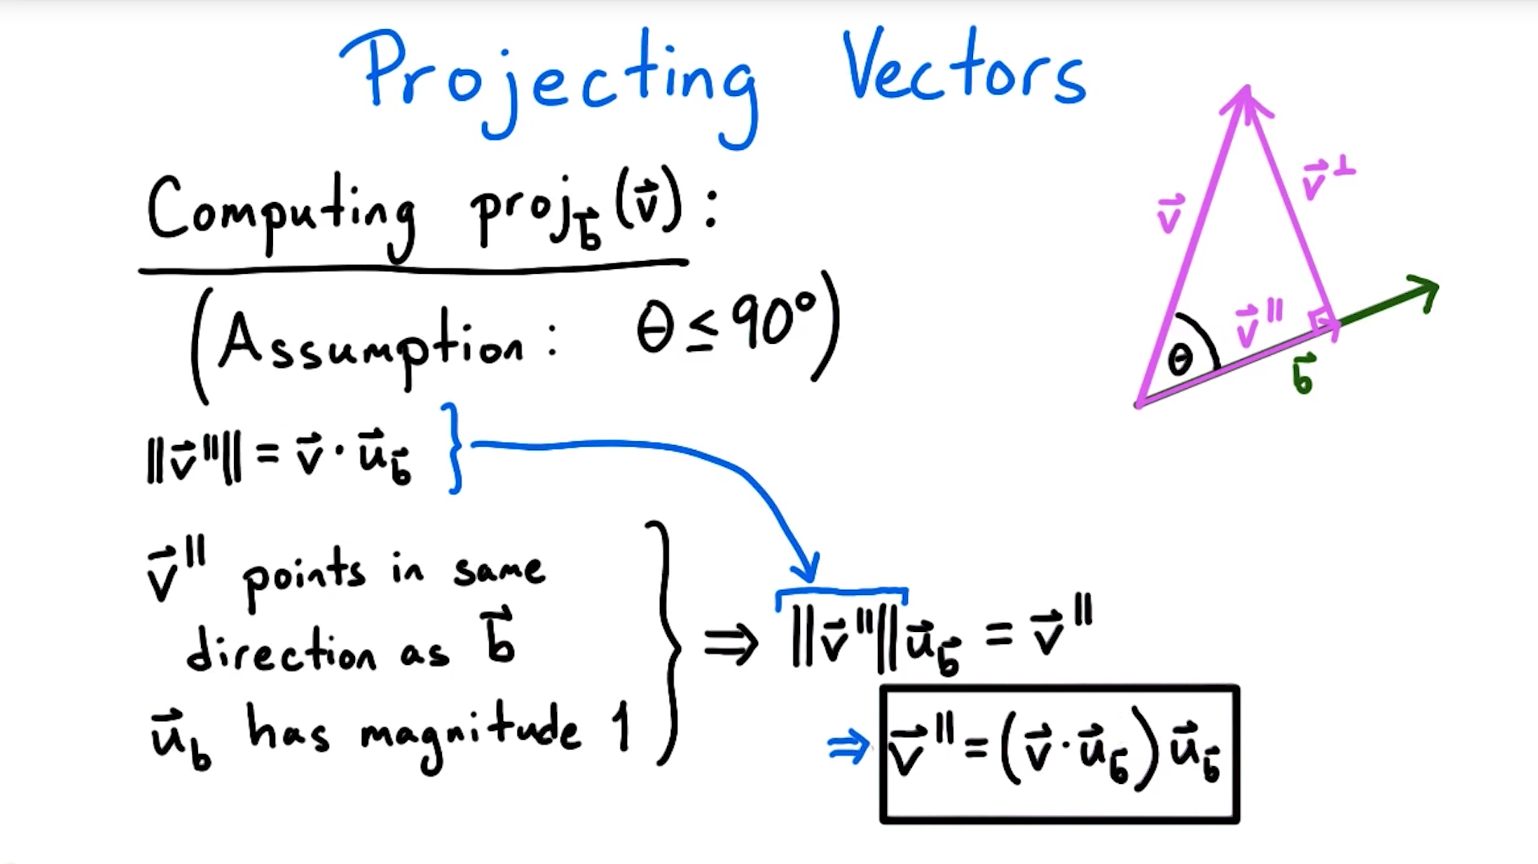 Projecting Vectors
Computing proj_b⃗(v⃗):
(Assumption: θ ≤ 90°)
‖v⃗^∥‖ = v⃗ · u⃗_b⃗ }
v⃗^∥ points in same
direction as b⃗
u⃗_b has magnitude 1
⇒ ‖v⃗^∥‖u⃗_b⃗ = v⃗^∥
⇒ v⃗^∥ = (v⃗ · u⃗_b⃗) u⃗_b⃗
v⃗
v⃗^⊥
v⃗^∥
θ
b⃗